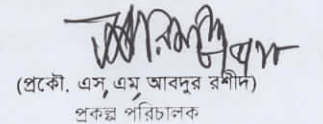 (প্রকৌ. এস, এম আবদুর রশীদ)
প্রকল্প পরিচালক